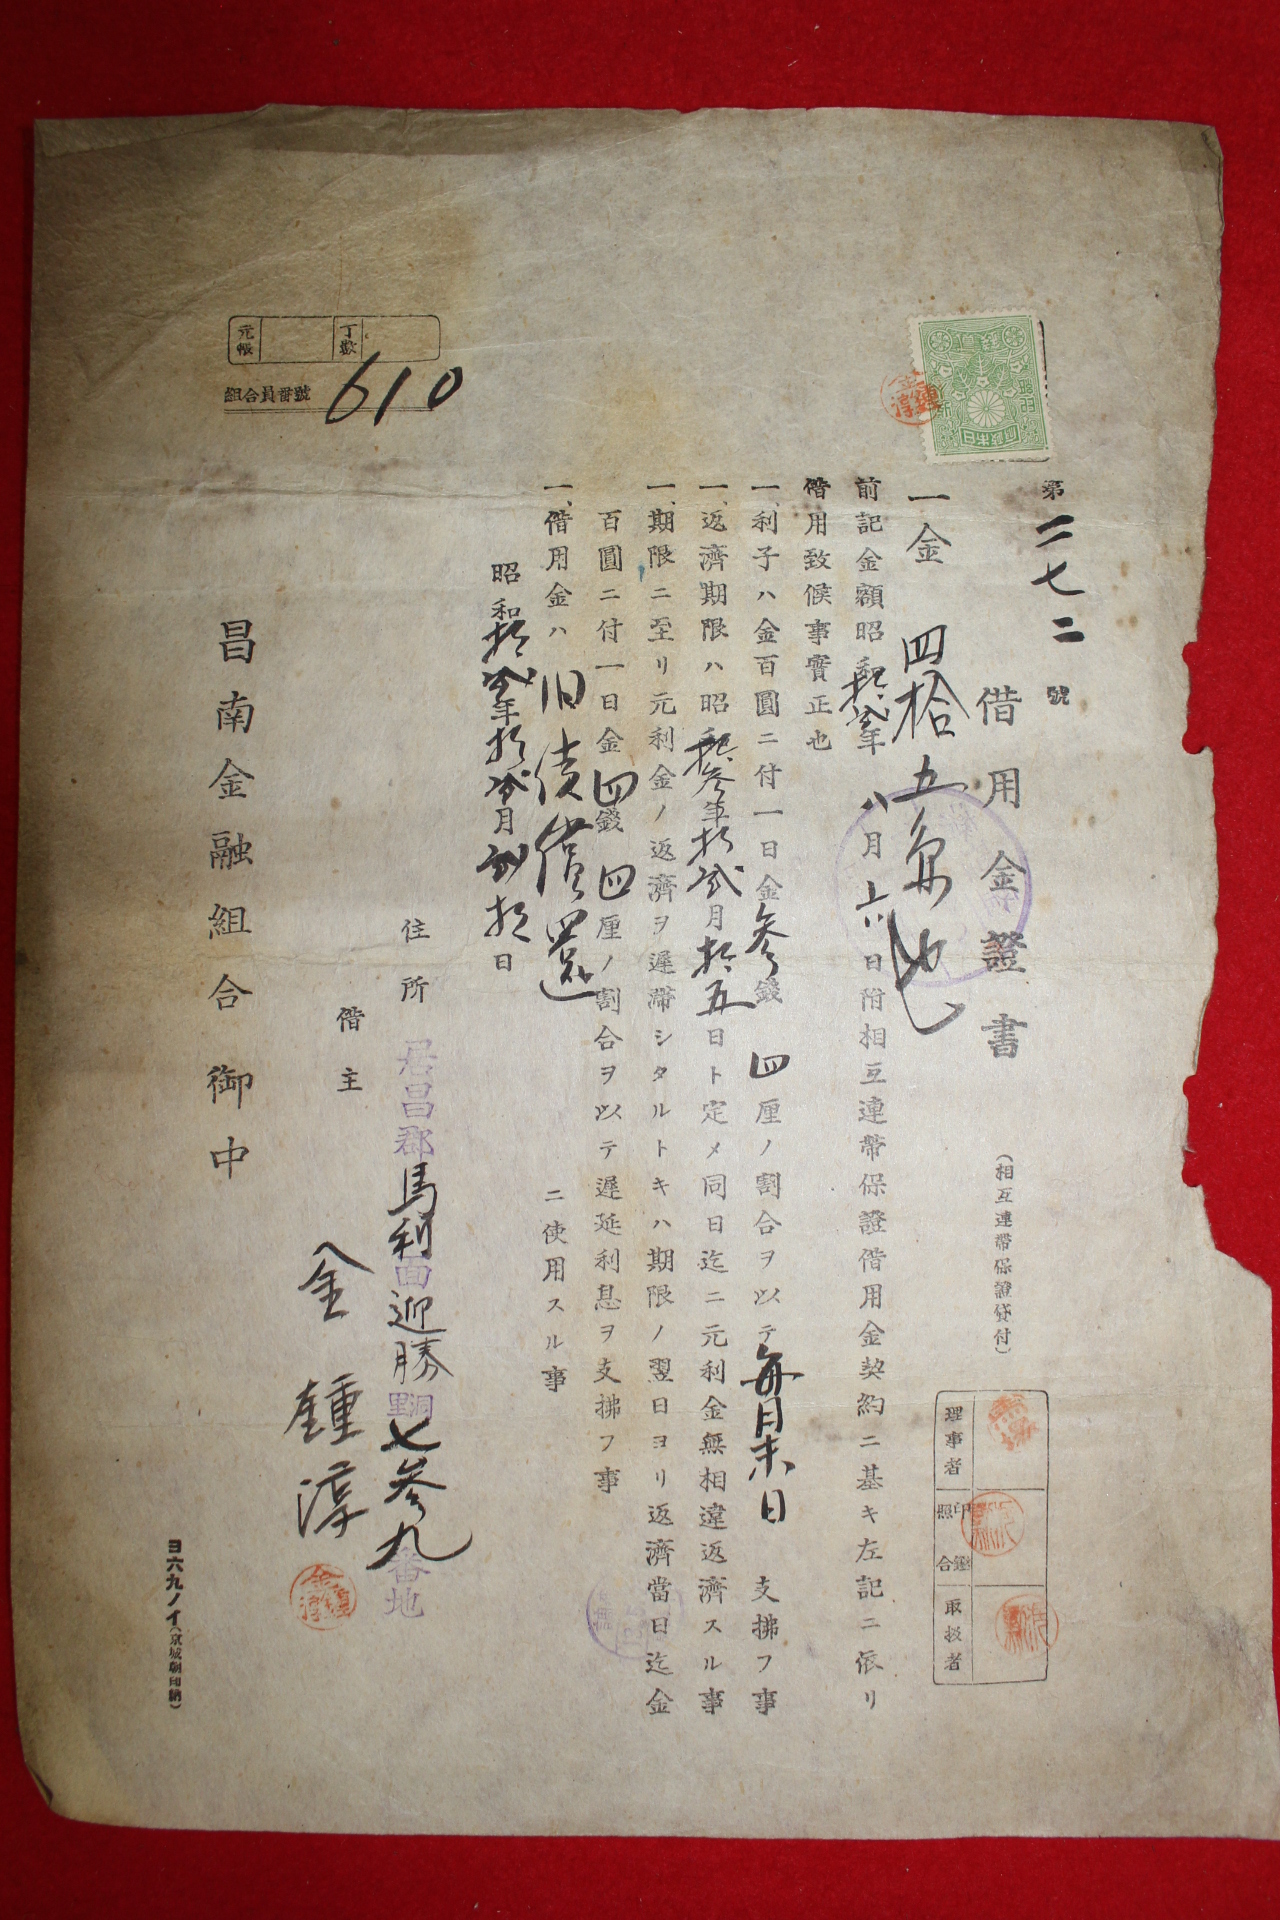 第二七二號
借用金證書
(相互連帶保證貸付)
理事者
印鑑照合
取扱者
一金四拾五圓也
前記金額昭和拾貳年八月六日附相互連帶保證借用金契約ニ基キ左記ニ依リ
借用致候事實正也
一、利子ハ金百圓ニ付一日金參錢四厘ノ割合ヲ以テ每月末日支拂フ事
一、返濟期限ハ昭和拾參年拾貳月拾五日ト定メ同日迄ニ元利金無相違返濟スル事
一、期限ニ至リ元利金ノ返濟ヲ遲滯シタルトキハ期限ノ翌日ヨリ返濟當日迄金
百圓ニ付一日金四錢四厘ノ割合ヲ以テ遲延利息ヲ支拂フ事
一、借用金ハ旧債償還ニ使用スル事
昭和拾貳年拾貳月貳拾日
住所 居昌郡馬利面迎勝洞里七參九番地
借主 金鍾淳
金鍾淳
昌南金融組合御中
元帳
丁數
組合員番號 610
ヨ六九ノイ(京城刷印納)
金鍾淳